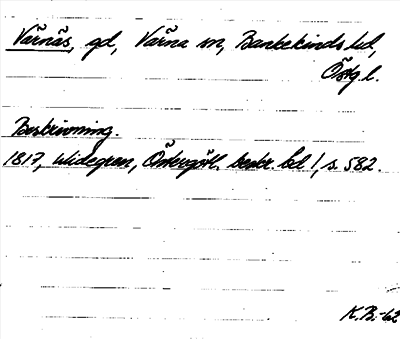 Värnäs, gd, Värna sn, Bankekinds hd,
Östg l.
Beskrivning.
1817, Widegren, Östergötl. beskr. bd 1, s. 582.
K.B.-62